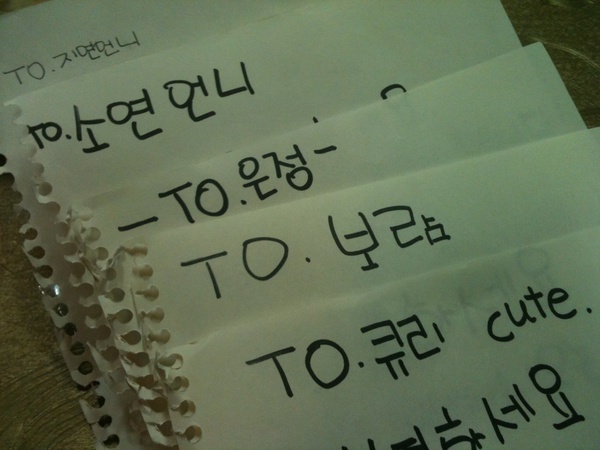 TO. 지연언니
TO. 소연 언니
-TO. 은정-
TO. 보람
TO. 큐리 cute.
하세요